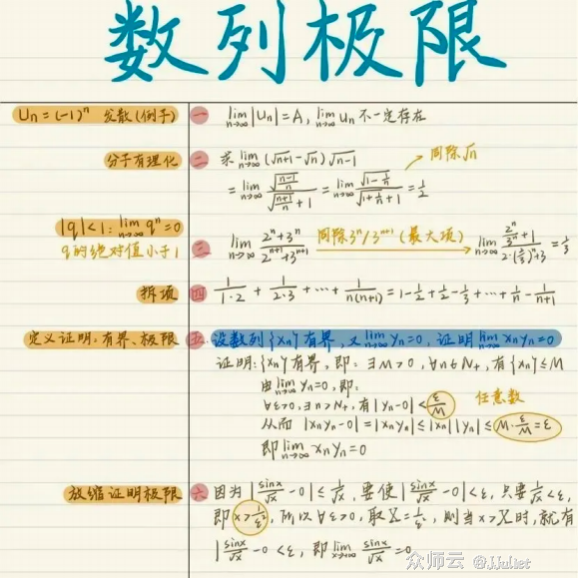 数列极限
Un = (-1)ⁿ 发散(例子)
一 lim n→∞ |Un| = A, lim n→∞ Un 不一定存在
分子有理化
二 求 lim n→∞ (√n+1 - √n) √n-1
同除√n
= lim n→∞ √(n-1)/n / (√(n+1)/n + 1) = lim n→∞ √(1-1/n) / (√(1+1/n) + 1) = 1/2
|q|<1: lim n→∞ qⁿ = 0
q的绝对值小于1
三 lim n→∞ (2ⁿ+3ⁿ)/(2ⁿ⁺¹+3ⁿ⁺¹) 同除3ⁿ/3ⁿ⁺¹(最大项) lim n→∞ (2ⁿ/3ⁿ+1)/(2·(2/3)ⁿ+3) = 1/3
拆项
四 1/(1·2) + 1/(2·3) + ··· + 1/(n(n+1)) = 1 - 1/2 + 1/2 - 1/3 + ··· + 1/n - 1/(n+1)
定义证明,有界、极限
五 设数列{xn}有界,又lim n→∞ yn=0, 证明lim n→∞ xnyn=0
证明:{xn}有界,即:∃M>0, ∀n∈N+, 有{xn}≤M
由lim n→∞ yn=0, 即:
∀ε>0, ∃n>N+, 有|yn-0|<ε/M
任意数
从而 |xnyn-0|=|xnyn|≤|xn||yn|≤M·ε/M=ε
即lim n→∞ xnyn=0
放缩证明极限
六 因为|sinx/√x - 0|≤1/√x, 要使|sinx/√x - 0|<ε, 只要1/√x<ε,
即x>1/ε², 所以∀ε>0, 取X=1/ε², 则当x>X时,就有
|sinx/√x - 0<ε, 即lim x→∞ sinx/√x=0
众师云 @JJuliet